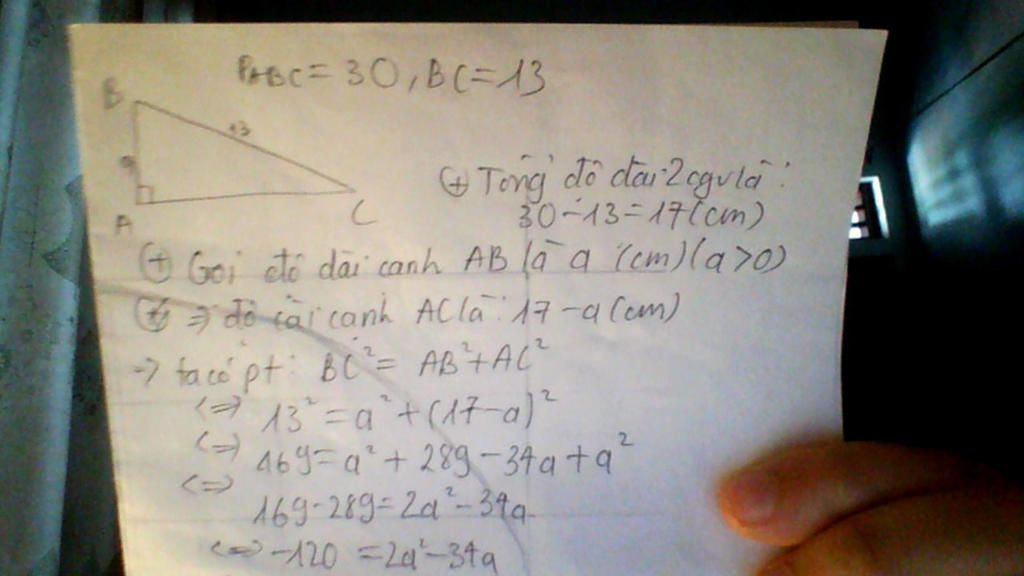 P ABC = 30, BC = 13
B
13
a
A
C
(+) Tổng độ dài 2 cgv là:
30 - 13 = 17 (cm)
(+) Gọi độ dài cạnh AB là a (cm) (a > 0)
⇒ độ dài cạnh AC là: 17 - a (cm)
→ ta có pt: BC² = AB² + AC²
<=> 13² = a² + (17 - a)²
<=> 169 = a² + 289 - 34a + a²
<=> 169 - 289 = 2a² - 34a
<=> -120 = 2a² - 34a